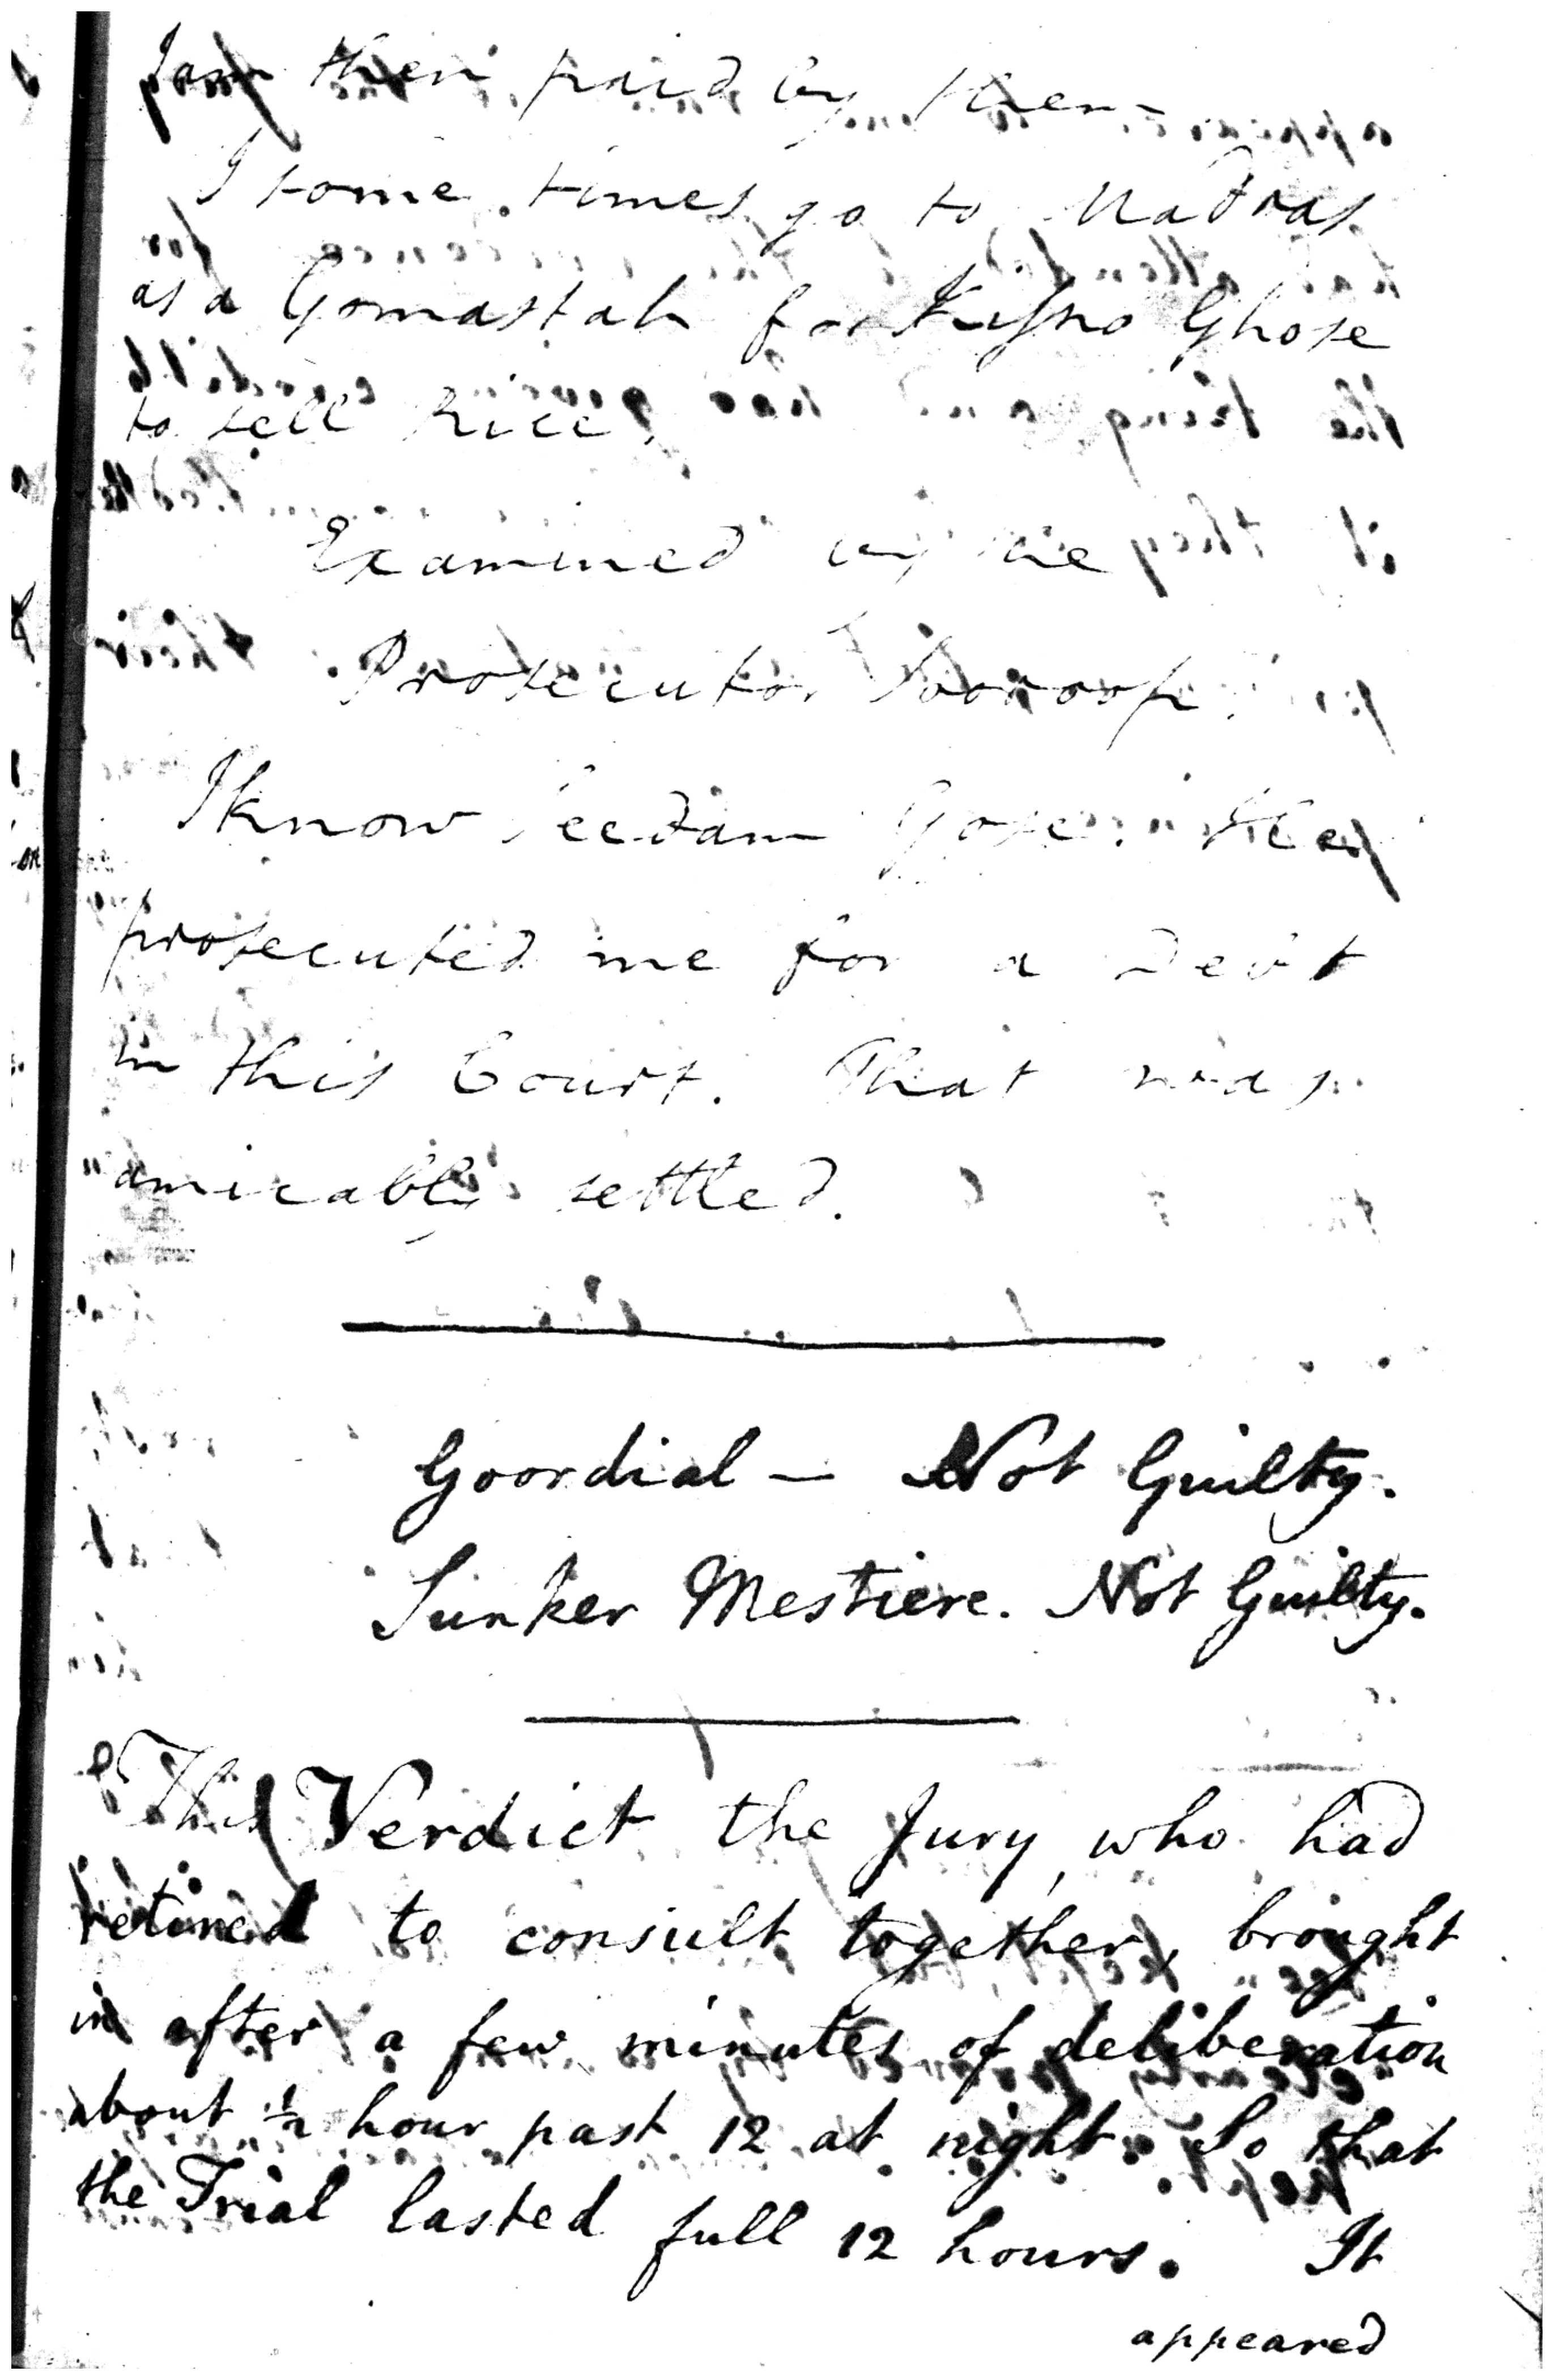 I am then paid by them
I some times go to Madras
as a Gomastah for Kissno Ghose
to sell Rice.
Examined by the
Prosecutor Sooroop.
I know Seedam Gose. He
prosecuted me for a Debt
in this Court. That was
amicably settled.
Goordial — Not Guilty.
Sunker Mestiere. Not Guilty.
This Verdict the Jury, who had
retired to consult together, brought
in after a few minutes of deliberation
about ½ hour past 12 at night. So that
the Trial lasted full 12 hours. It
appeared